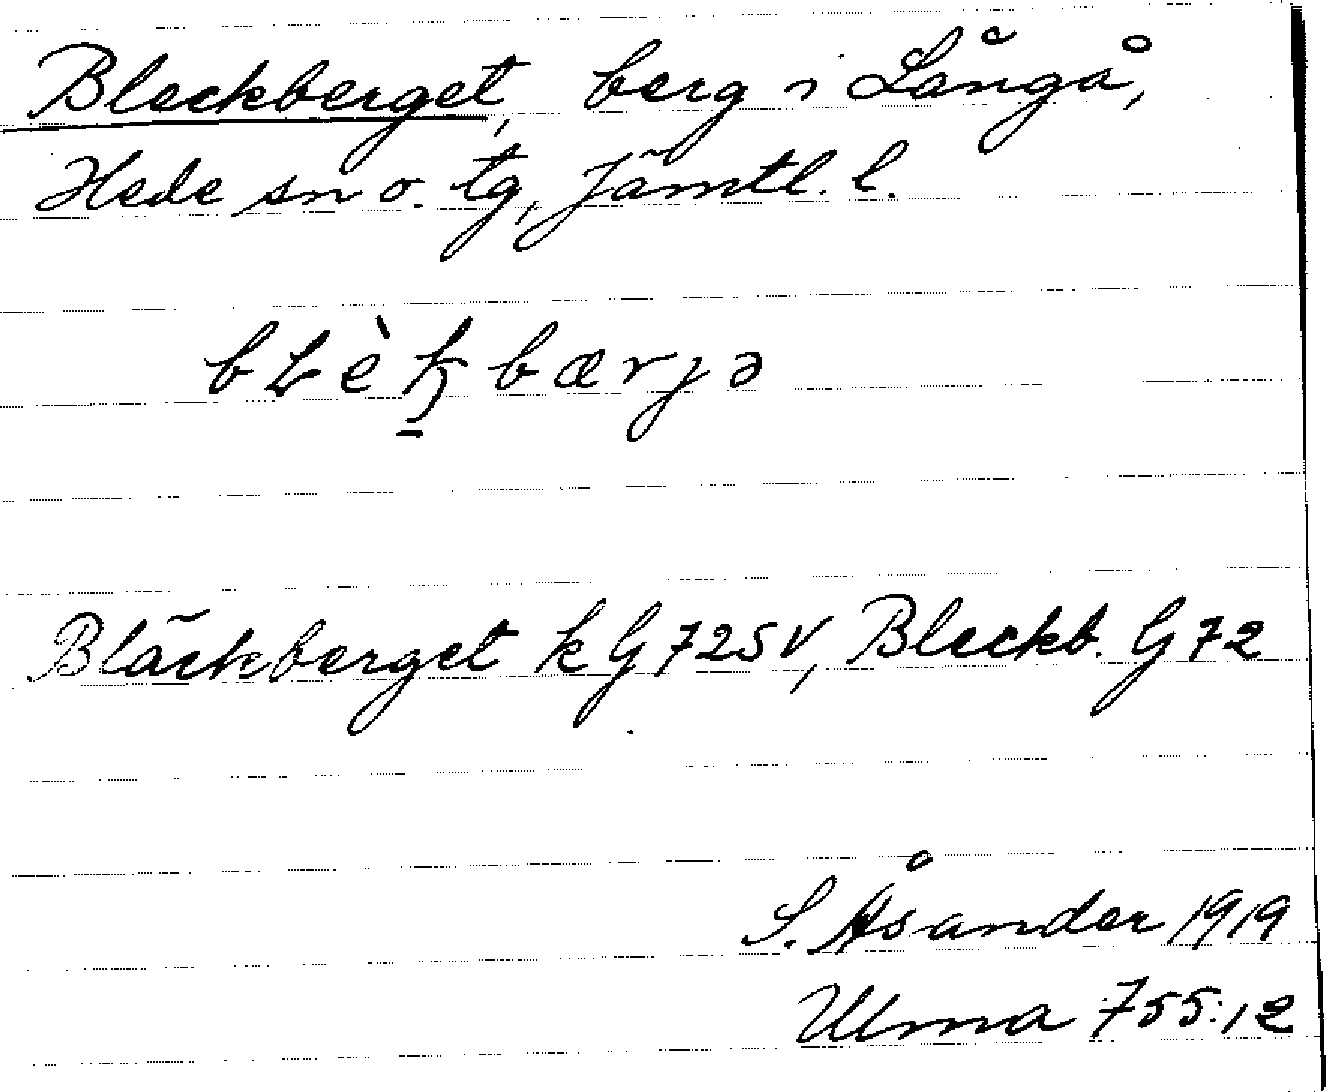 Bleckberget, berg i Långå,
Hede sn o. tg, Jämtl. l.
bLèk̠bærjə
Bläckberget k G 72SV, Bleckb. G 72
S. Åsander 1919
Ulma 755:12